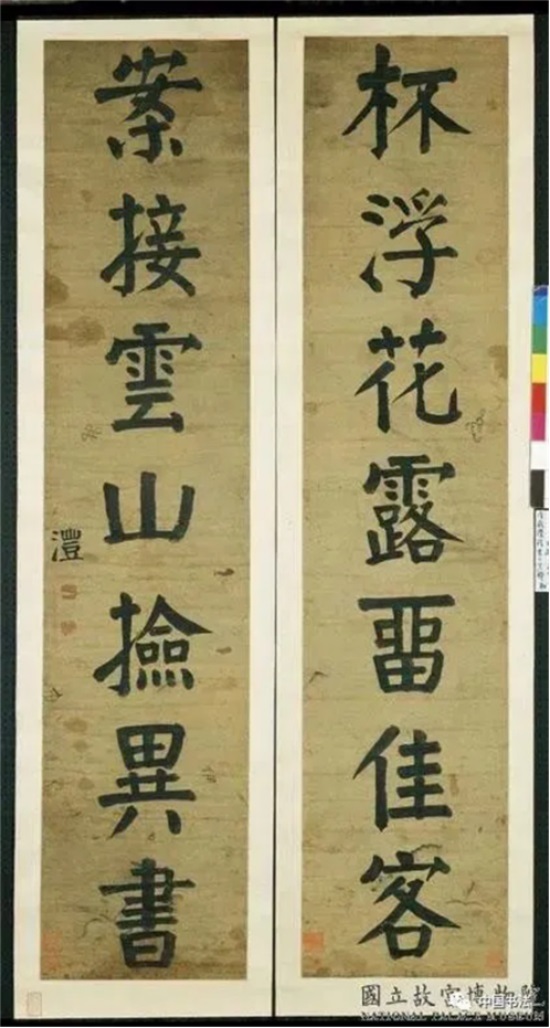 杯浮花露畱佳客
案接雲山撿異書
澧
國立故宮博物院
NATIONAL PALACE MUSEUM
中国书法